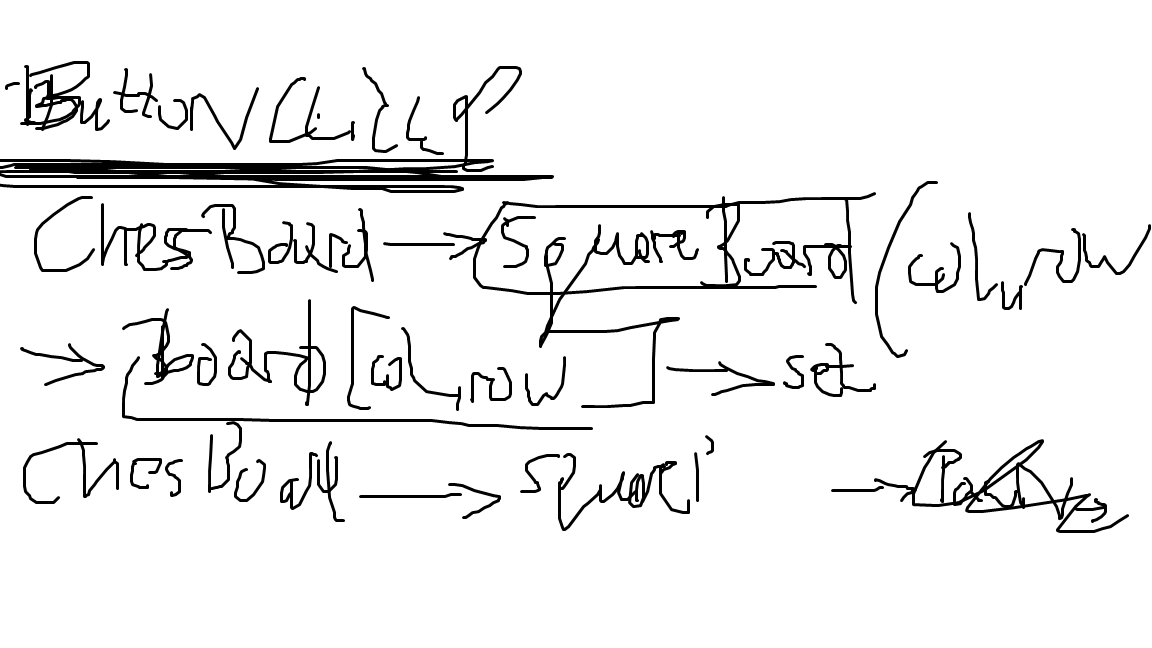 Button Click
ChesBoard → SquareBoard (col, row
→ Board [col, row ] → set
ChesBoard → Square